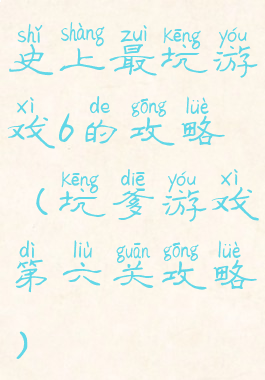 shǐ shàng zuì kēng yóu
史上最坑游
xì de gōng lüè
戏6的攻略
kēng diē yóu xì
(坑爹游戏
dì liù guān gōng lüè
第六关攻略
)